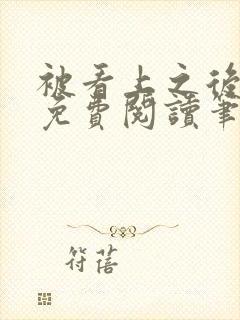 被看上之後
免費閱讀筆
符蓓